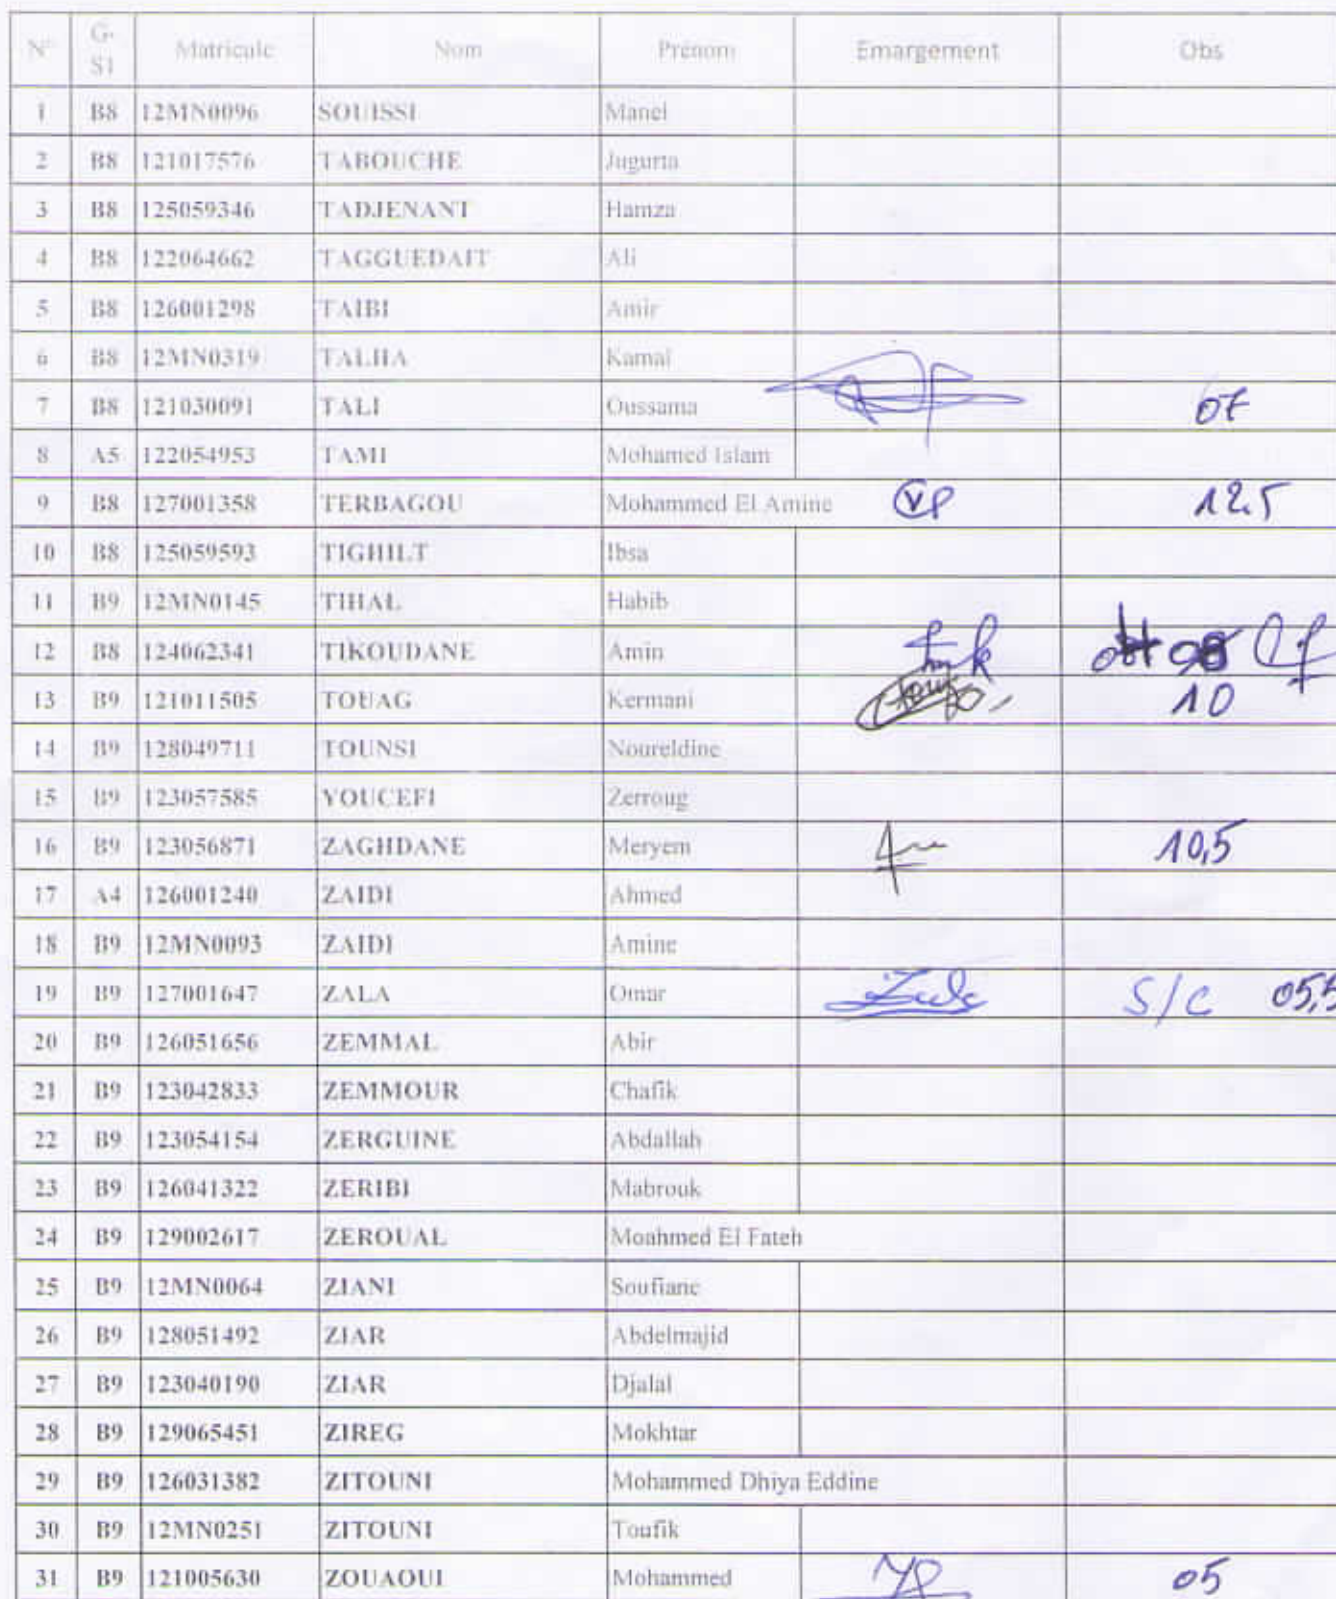 N° G-S1 Matricule Nom Prénom Emargement Obs
1 B8 12MN0096 SOUISSI Manel
2 B8 121017576 TABOUCHE Jugurta
3 B8 125059346 TADJENANT Hamza
4 B8 122064662 TAGGUEDAIT Ali
5 B8 126001298 TAIBI Amir
6 B8 12MN0319 TALHA Kamal
7 B8 121030091 TALI Oussama 07
8 A5 122054953 TAMI Mohamed Islam
9 B8 127001358 TERBAGOU Mohammed El Amine 12.5
10 B8 125059593 TIGHILT Ibsa
11 B9 12MN0145 TIHAL Habib
12 B8 124062341 TIKOUDANE Amin
13 B9 121011505 TOUAG Kermani 10
14 B9 128049711 TOUNSI Noureldine
15 B9 123057585 YOUCEFI Zerroug
16 B9 123056871 ZAGHDANE Meryem 10,5
17 A4 126001240 ZAIDI Ahmed
18 B9 12MN0093 ZAIDI Amine
19 B9 127001647 ZALA Omar S/C 05,5
20 B9 126051656 ZEMMAL Abir
21 B9 123042833 ZEMMOUR Chafik
22 B9 123054154 ZERGUINE Abdallah
23 B9 126041322 ZERIBI Mabrouk
24 B9 129002617 ZEROUAL Moahmed El Fateh
25 B9 12MN0064 ZIANI Soufiane
26 B9 128051492 ZIAR Abdelmajid
27 B9 123040190 ZIAR Djalal
28 B9 129065451 ZIREG Mokhtar
29 B9 126031382 ZITOUNI Mohammed Dhiya Eddine
30 B9 12MN0251 ZITOUNI Toufik
31 B9 121005630 ZOUAOUI Mohammed 05